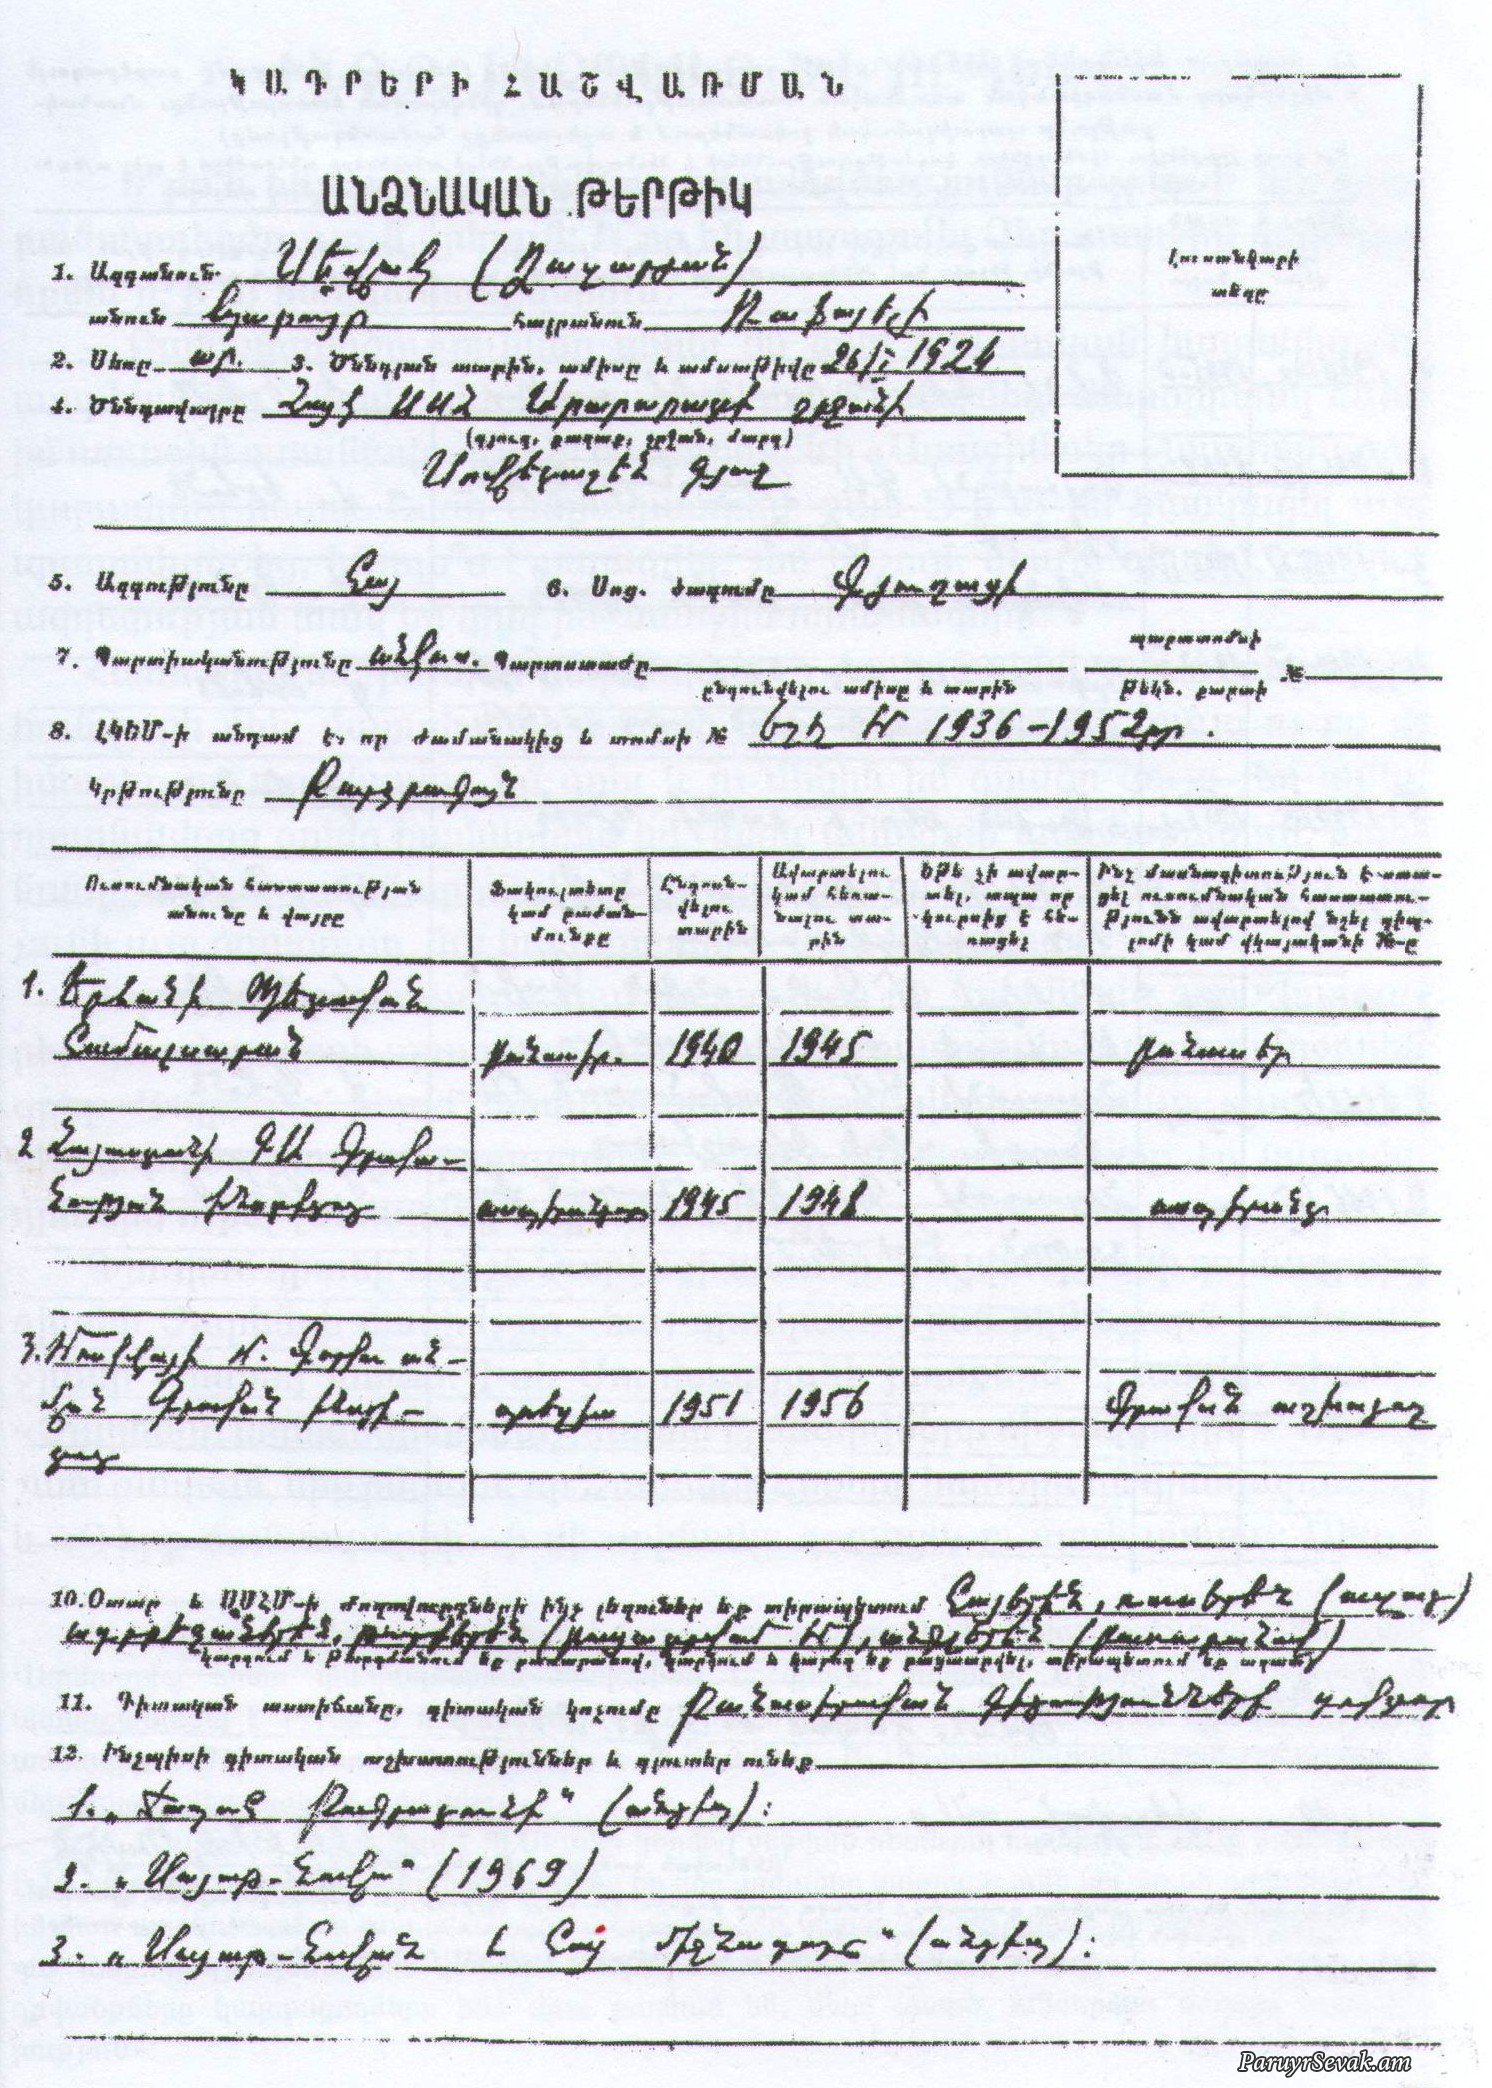 ԿԱԴՐԵՐԻ ՀԱՇՎԱՌՄԱՆ
ԱՆՁՆԱԿԱՆ ԹԵՐԹԻԿ
1. Ազգանուն Սևակ (Ղազարյան)
անուն Պարույր հայրանուն Ռաֆայելի
Լուսանկարի
տեղը
2. Սեռը ար. 3. Ծննդյան տարին, ամիսը և ամսաթիվը 26/I 1924
4. Ծննդավայրը Հայկ ՍՍՀ Արարատի շրջանի
(գյուղ, քաղաք, շրջան, մարզ)
Սովետաշեն գյուղ
5. Ազգությունը հայ 6. Սոց. ծագումը Գյուղացի
7. Պարտիականությունը անկուս. Պարտստաժը
պարտտոմսի
ընդունվելու ամիսը և տարին թեկն. քարտի №
8. ԼԿԵՄ-ի անդամ է, որ ժամանակից և տոմսի № Եղել եմ 1936-1952թթ.
Կրթությունը Բարձրագույն
Ուսումնական հաստատության անունը և վայրը
Ֆակուլտետը կամ բաժանմունքը
Ընդունվելու տարին
Ավարտելու կամ հեռանալու տարին
Եթե չի ավարտել, ապա որ կուրսից է հեռացել
Ինչ մասնագիտություն է ստացել ուսումնական հաստատությունն ավարտելով նշել դիպլոմի կամ վկայականի №-ը
1. Երևանի Պետական
Համալսարան բանասիր. 1940 1945 բանասեր
2 Հայաստանի ԳԱ Գրակա-
նության ինստիտուտ ասպիրանտուրա 1945 1948 ասպիրանտ
3. Մոսկվայի Մ. Գորկու ան-
վան Գրական ինստի- պոեզիա 1951 1956 Գրական աշխատող
տուտ
10. Օտար և ՍՍՀՄ-ի ժողովուրդների ինչ լեզուներ եք տիրապետում Հայերեն, ռուսերեն (ազատ)
ադրբեջաներեն,
կարդում և թարգմանում եք բառարանով, կարդում և կարող եք բացատրվել, տիրապետում եք ազատ
11. Գիտական աստիճանը, գիտական կոչումը Բանասիրական գիտությունների դոկտոր
12. Ինչպիսի գիտական աշխատություններ և գյուտեր ունեք
1. „ (անտիպ):
2. „Սայաթ-Նովա" (1969)
3. „Սայաթ-Նովան և հայ միջնադարը" (անտիպ):
ParuyrSevak.am